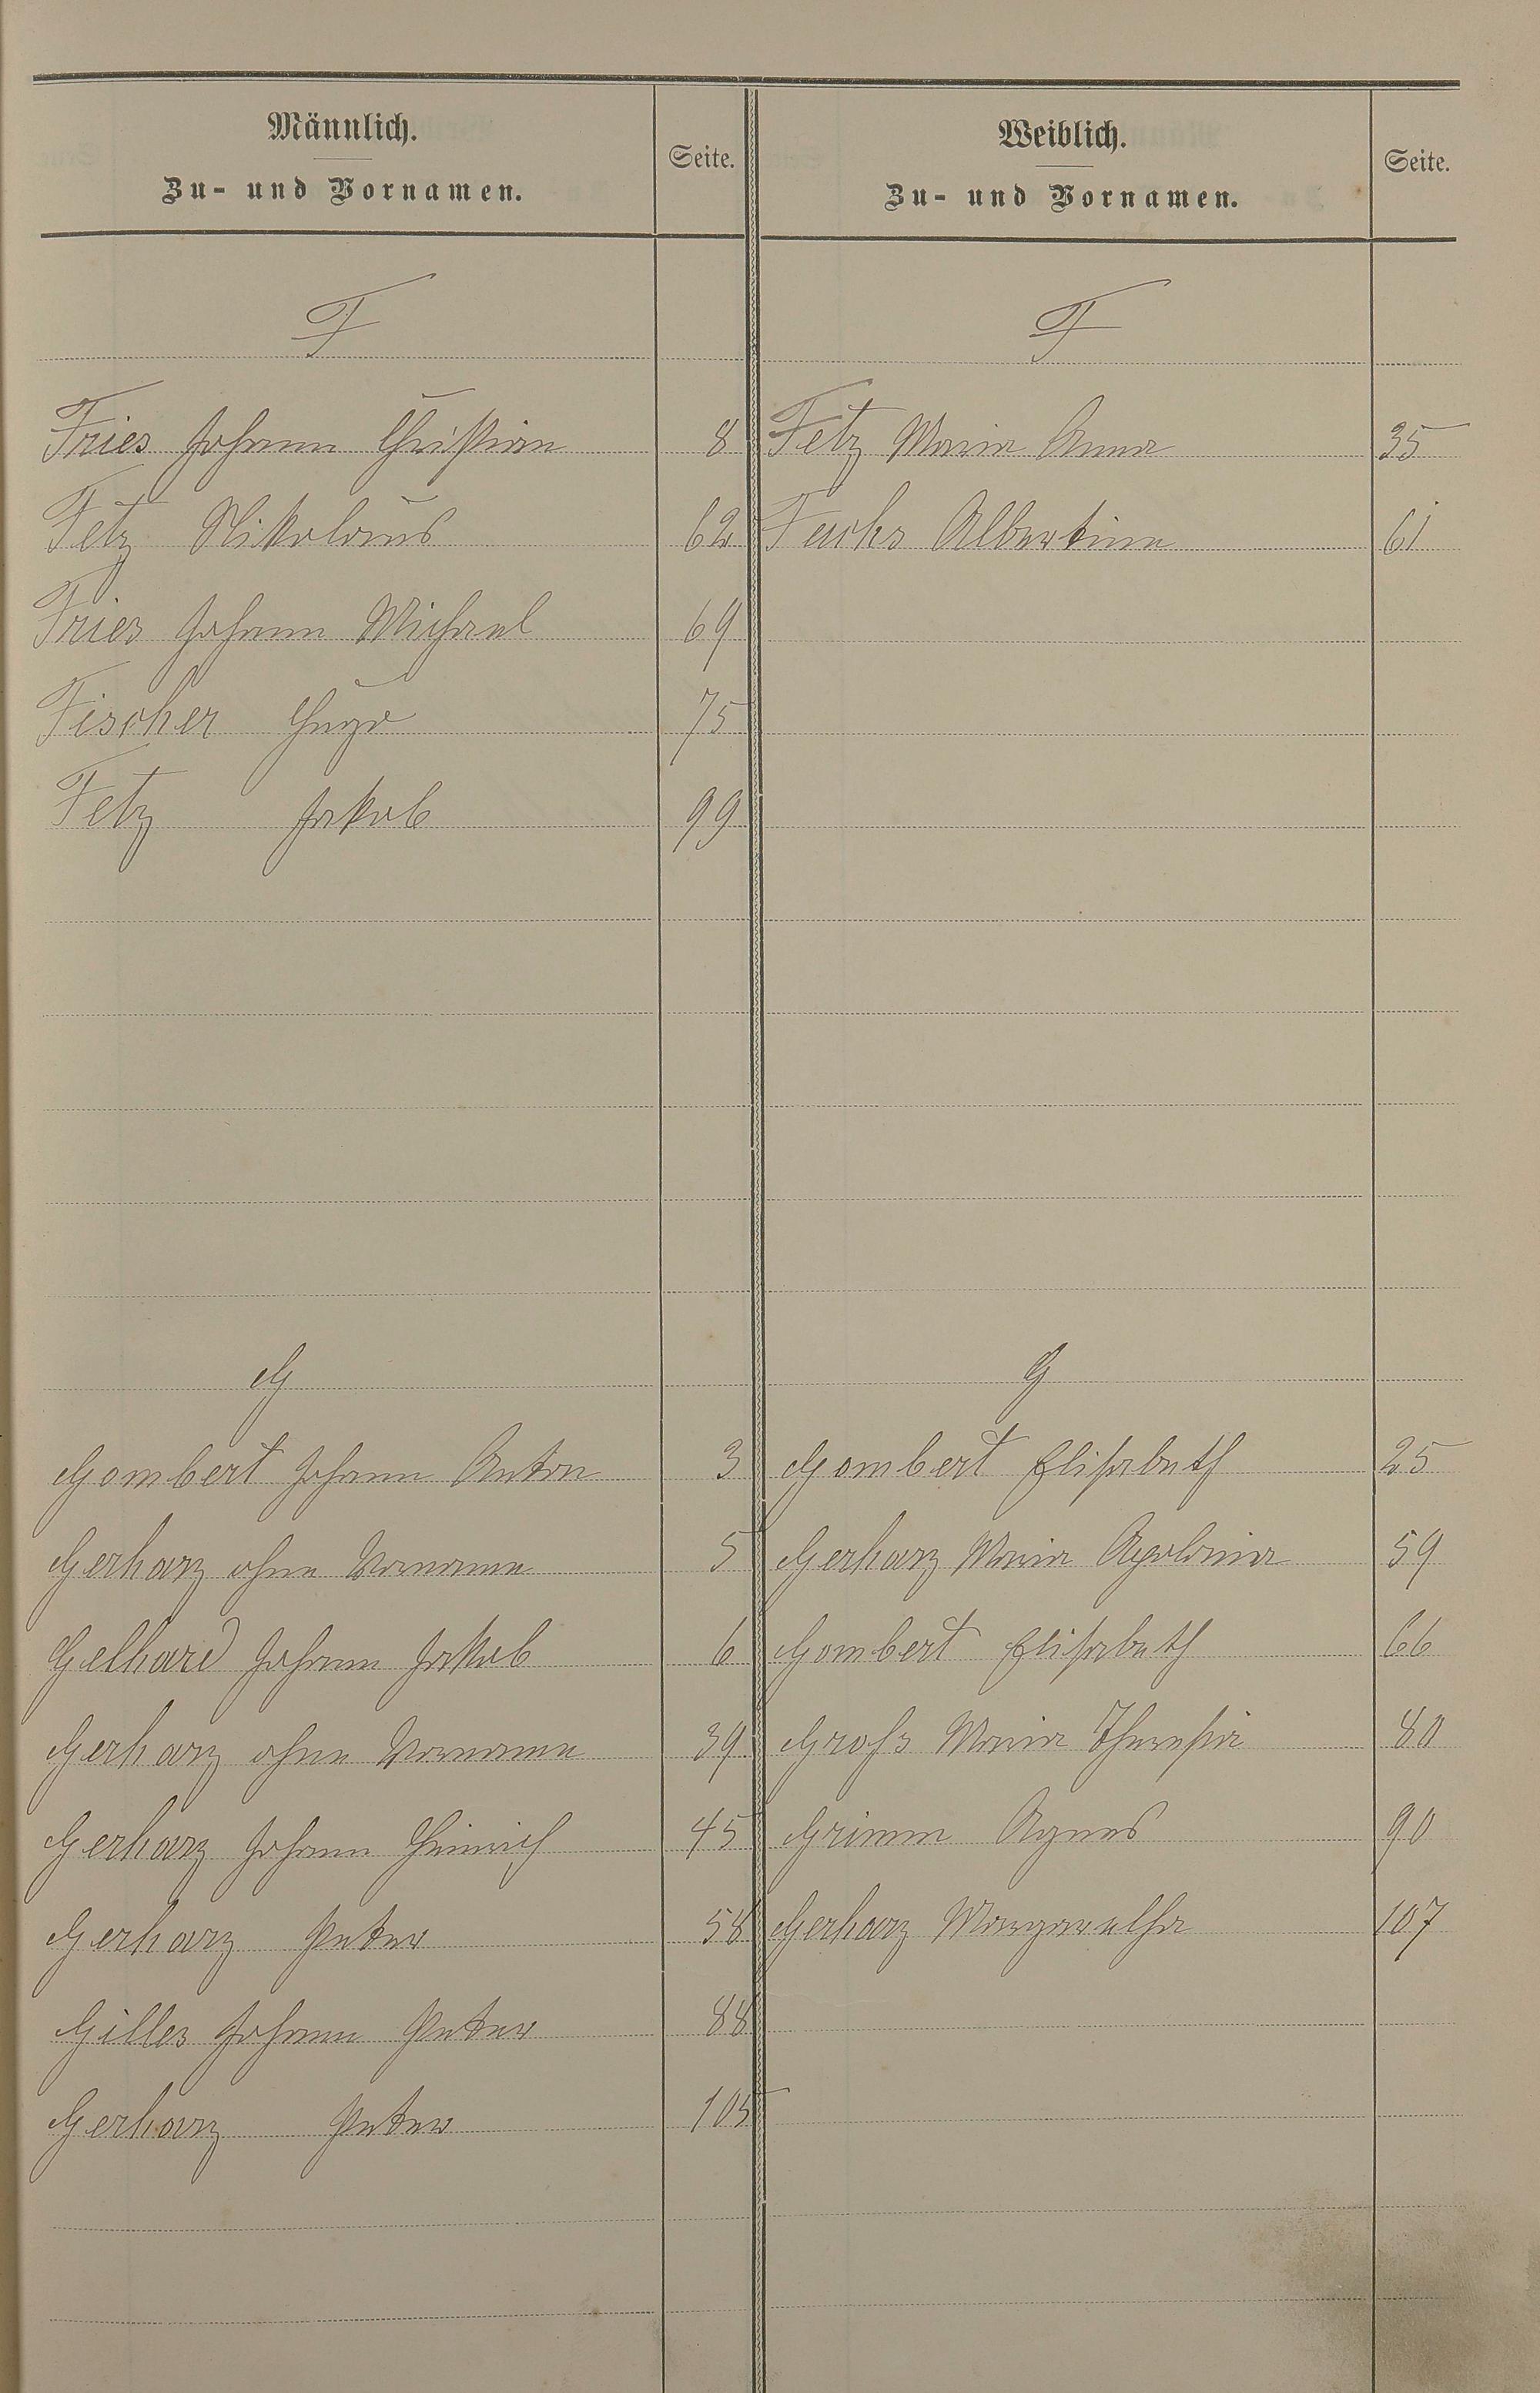 Männlich.
Zu- und Vornamen.
Seite.
Weiblich.
Zu- und Vornamen.
Seite.
F
F
Fries Johann Christian 8
Fetz Maria Anna 35
Fetz Nikolaus 62
Fuchs Albertine 61
Fries Johann Michael 69
Fischer Hugo 75
Fetz Jakob 99
G
G
Gombert Johann Anton 3
Gombert Elisabeth 25
Gerharz ohne Vorname 5
Gerharz Maria Apolonia 59
Gelhard Johann Jakob 6
Gombert Elisabeth 66
Gerharz ohne Vorname 39
Groß Maria Theresia 80
Gerharz Johann Heinrich 45
Grimm Agnes 90
Gerharz Peter 58
Gerharz Margaretha 107
Gilles Johann Peter 88
Gerharz Peter 105